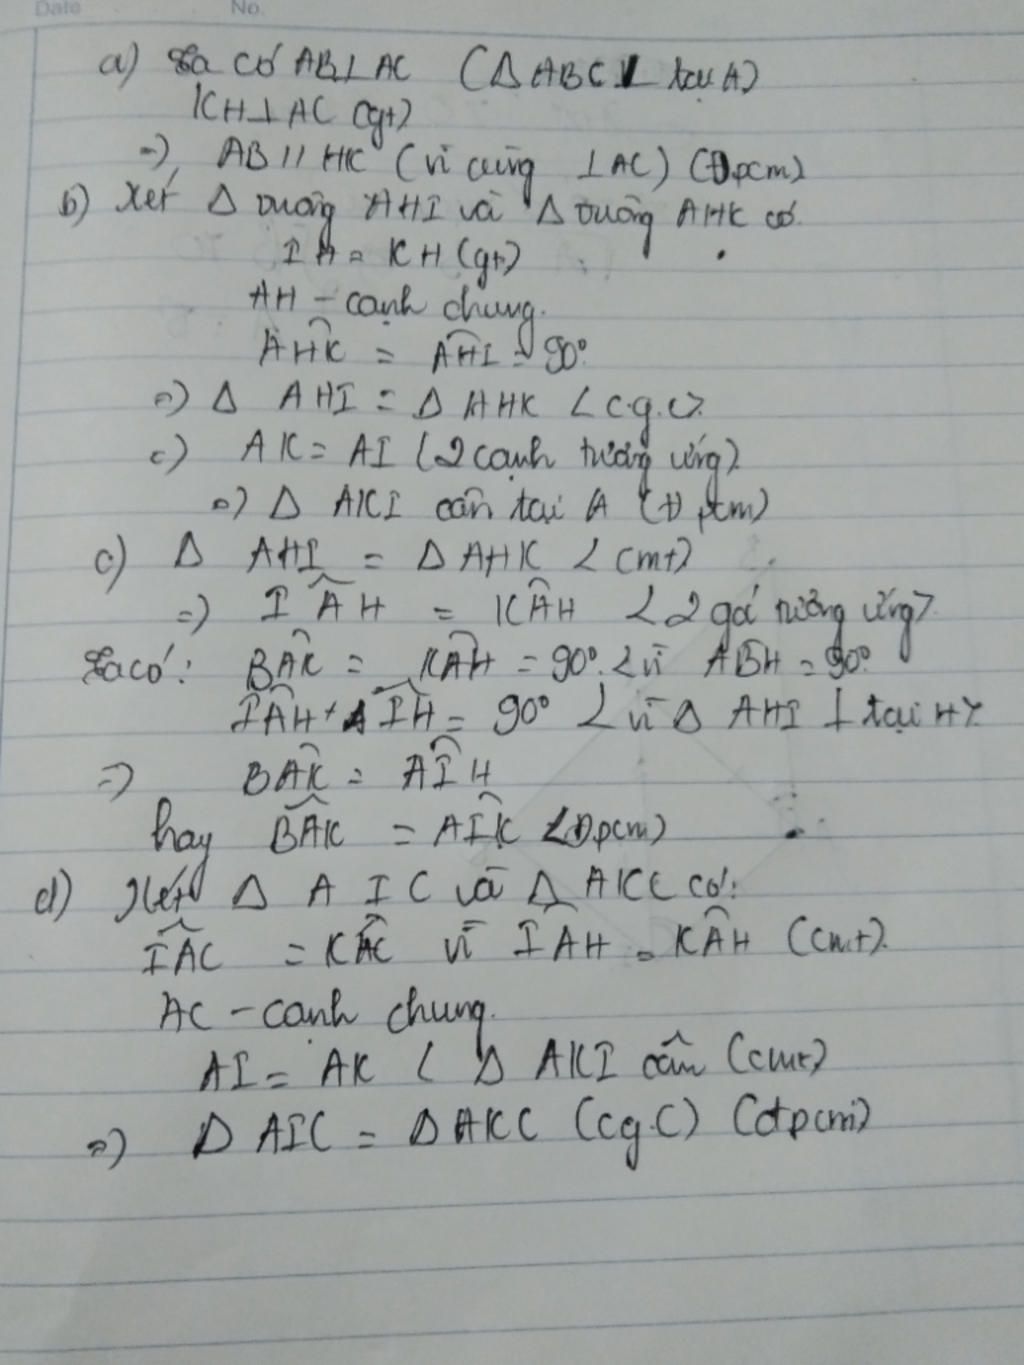 Date No.
a) Ta có AB⊥AC (Δ ABC ⊥ tại A)
KH⊥AC (gt)
=) AB // HK (vì cùng ⊥AC) (Đpcm)
b) Xét Δ vuông AHI và Δ vuông AHK có
IH = KH (gt)
AH - cạnh chung.
AĤK = AĤI = 90°
=) Δ AHI = Δ AHK <c.g.c>
=) AK = AI (2 cạnh tương ứng)
=) Δ AKI cân tại A (Đpcm)
c) Δ AHI = Δ AHK <cmt)
=) IÂH = KÂH <2 gó tương ứng>
Ta có: BÂK = KÂH = 90° <vì AB̂H = 90°
IÂH + AÎH = 90° <vì Δ AHI ⊥ tại H>
=) BÂK = AÎH
hay BÂK = AÎK <Đpcm)
d) Xét Δ AIC và Δ AKC có:
IÂC = KÂC vì IÂH = KÂH (cmt).
AC - cạnh chung.
AI = AK < Δ AKI cân (cmt)
=) Δ AIC = Δ AKC (cg.c) (đpcm)